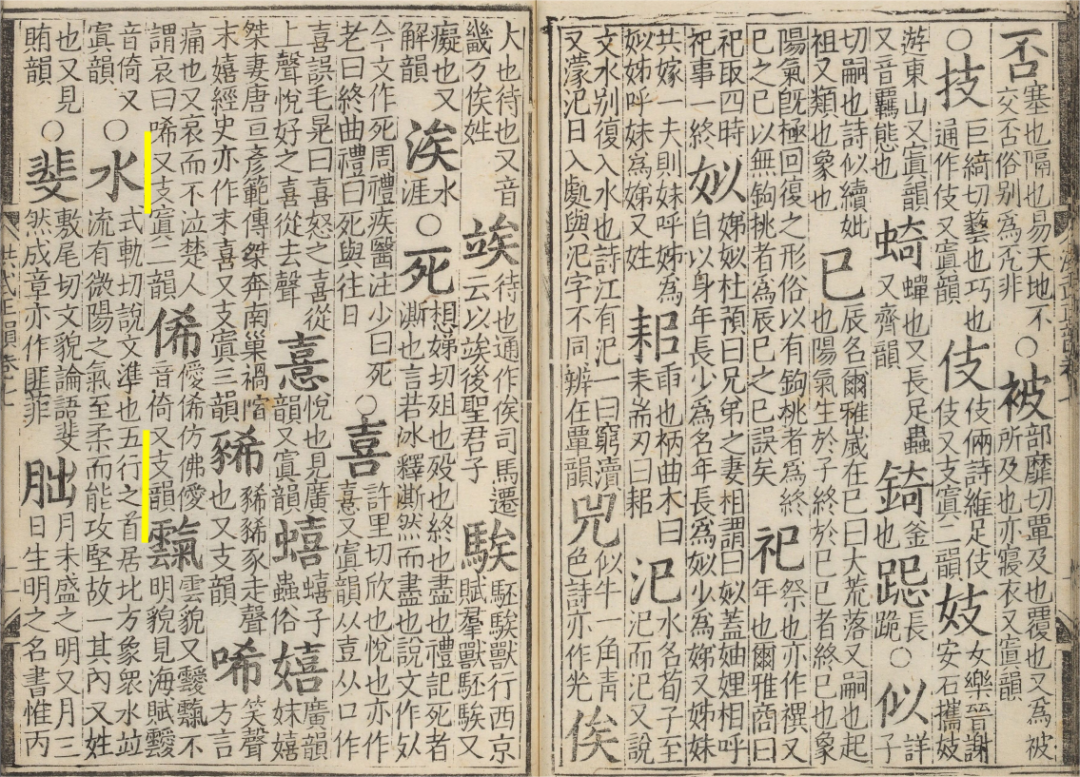 否塞也隔也易天地不交否俗别為兂非○被部靡切覃及也覆也又為被所及也亦寢衣又寘韻
○技巨綺切藝也巧也通作伎又寘韻伎伎倆詩維足伎伎又支寘二韻妓女樂晉謝安石攜妓
游東山又寘韻又音覊態也蟬也又長足蟲又齊韻錡釜也跽長跪○似詳子
切嗣也詩似續妣祖又類也象也巳辰名爾雅嵗在巳曰大荒落又嗣也起也陽氣生於子終於巳巳者終巳也象
陽氣旣極回復之形俗以有鉤挑者為終巳之巳以無鉤挑者為辰巳之巳誤矣祀祭也亦作禩又年也爾雅商曰
祀取四時祀事一終姒娣姒杜預曰兄弟之妻相謂曰姒蓋妯娌相呼自以身年長少為名年長為姒少為娣又姊妹
共嫁一夫則妹呼姊為姒姊呼妹為娣又姓耜臿也枘曲木曰耒耑刃曰耜汜水名荀子至汜而汜又說
文水别復入水也詩江有汜一曰窮瀆又濛汜日入處與汜字不同辨在覃韻兕似牛一角青色詩亦作光俟
大也待也又音畿万俟姓竢待也通作俟司馬遷云以竢後聖君子騃駓騃獸行西京賦羣獸駓騃又
癡也又解韻涘水涯○死想娣切殂也殁也終也盡也禮記死者澌也言若冰釋澌然而盡也說文作
今文作死周禮疾醫注少曰死老曰終曲禮曰死與往日○喜許里切欣也悅也亦作憙又寘韻从壴从口作
喜誤毛晃曰喜怒之喜從上聲悅好之喜從去聲憙悅也見廣韻又寘韻蟢蟢子蟲俗嬉廣韻妹嬉
桀妻唐亘彥範傳桀奔南巢禍階末嬉經史亦作末喜又支寘三韻豨豨豨豕走聲也又支韻唏笑聲方言
痛也又哀而不泣楚人謂哀曰唏又支寘二韻俙僾俙仿佛僾音倚又支韻雲貌又靉不明貌見海賦靉
音倚又寘韻○水式軌切說文準也五行之首居北方象衆水竝流有微陽之氣至柔而能攻堅故一其內又姓
也又見賄韻○斐敷尾切文貌論語斐然成章亦作匪菲朏月未盛之明又月三日生明之名書惟丙
洪武正韻卷七